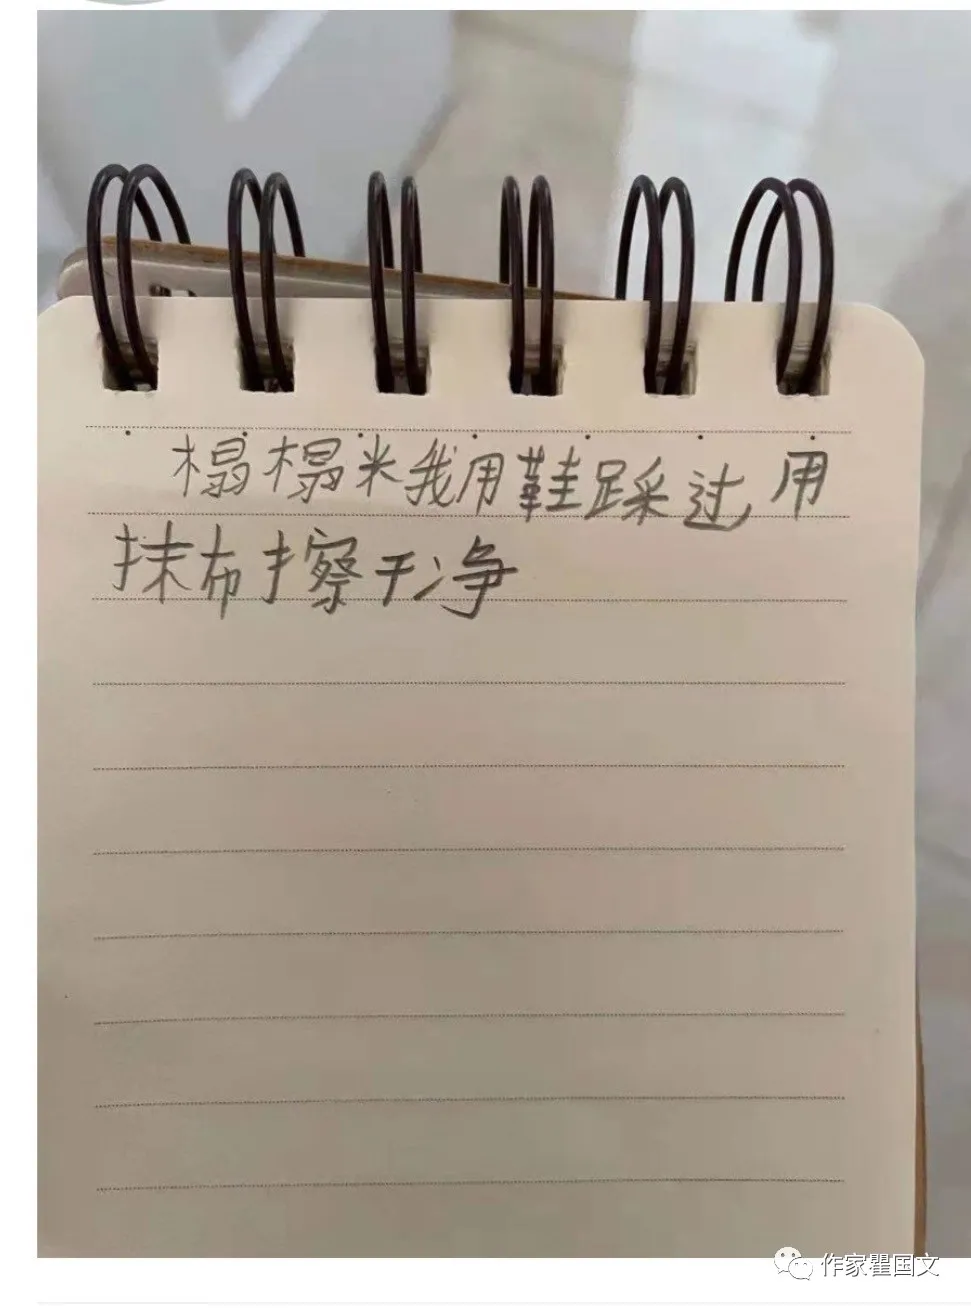 榻榻米我用鞋踩过用
抹布擦干净
作家瞿国文